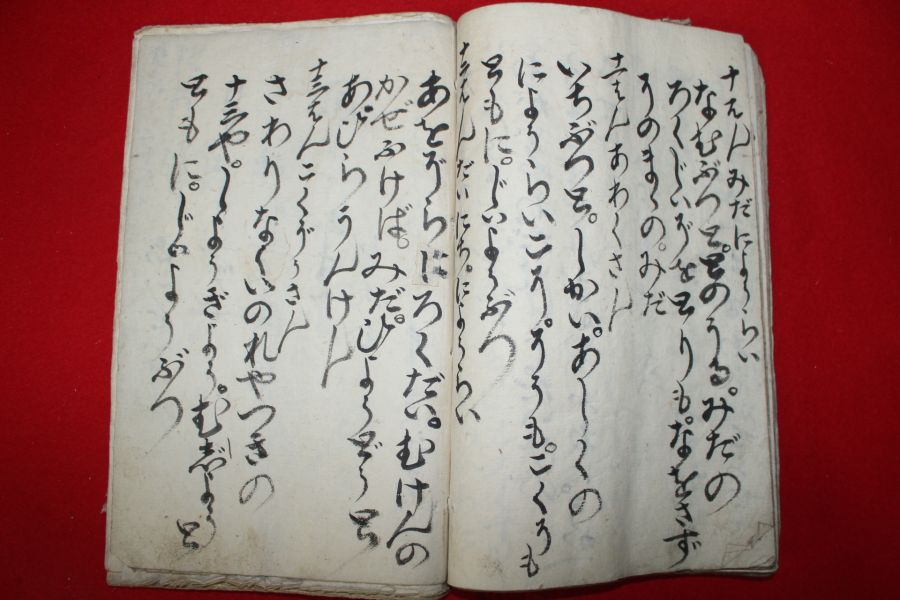 十ばんみだによらい
なむぶつと。とのうる。みだの
ろくじいがをとりも。なをさず
そのまゝの。みだ
十一ばんあしくさん
いちぶつと。しかい。あしくの
によらいこそ。そらも。こくうも
ともに。じょうぶつ
十二ばんだいにち。によらい
あをぞらに ろくだい。むけんの
かぜふけば。みだ。びようどうと
あびらうんけん
十三ばんこくぞうさん
さわりないのれやつきの
十三や。しようぎよう。むぢようと
ともに。じようぶつ